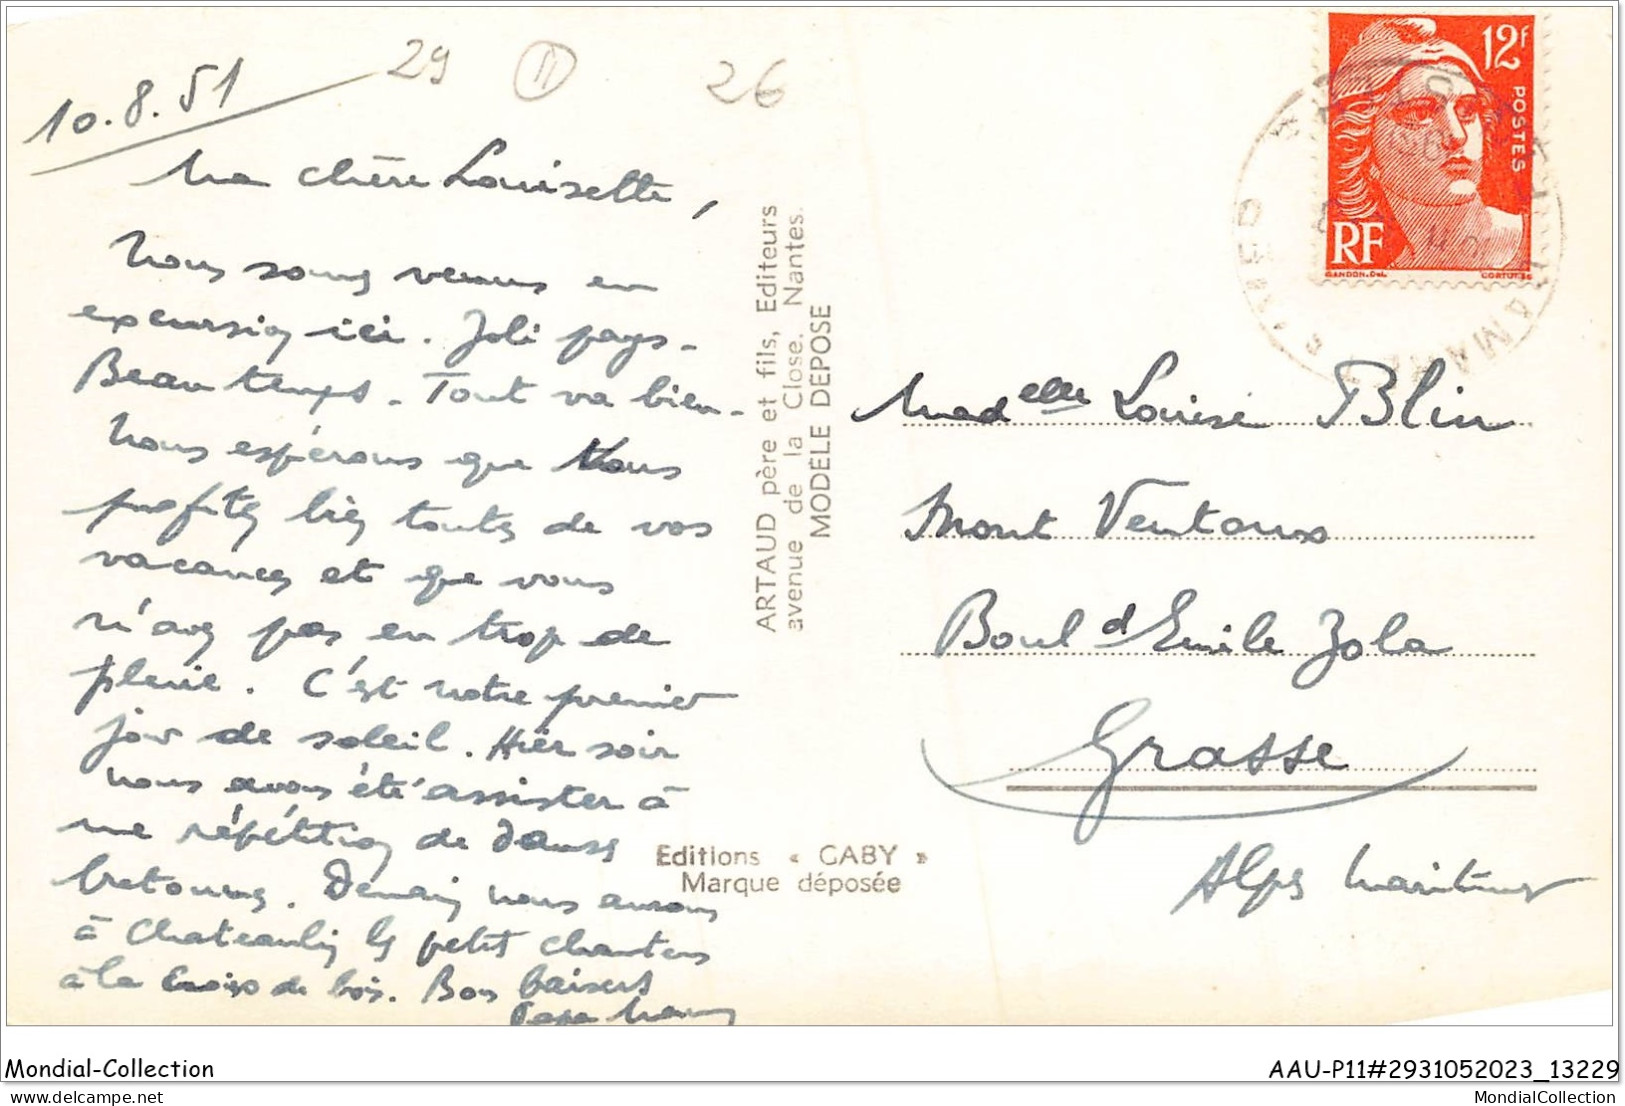 10.8.51
29
11
26
Ma chère Louisette,
Nous somms venus en
excursion ici. Joli pays -
Beau temps - Tout va bien -
Nous espérons que Vous
profitez bien toutes de vos
vacances et que vous
n'avez pas eu trop de
pluie. C'est notre premier
jour de soleil. Hier soir
nous avons été assister à
une répétition de danses
bretonnes. Demain nous aurons
à Chateaulin les petits chanteurs
à la croix de bois. Bons baisers
Papa Maman
ARTAUD père et fils, Editeurs
avenue de la Close. Nantes.
MODÈLE DÉPOSÉ
Editions « GABY »
Marque déposée
12f
POSTES
RF
GANDON.Del.
CORTOT.Sc
Madelle Louise Blin
Mont Ventoux
Boul d Emile Zola
Grasse
Alpes Maritimes
Mondial-Collection
AAU-P11#2931052023_13229
mondial-collection.com
MondialCollection